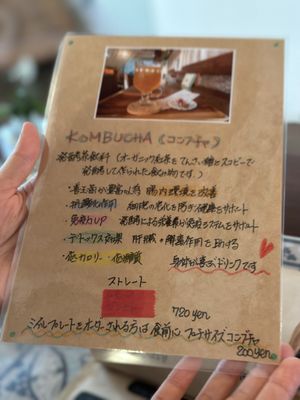 KOMBUCHA (コンブチャ)
発酵茶飲料 (オーガニック紅茶をてんさい糖とスコビーで
発酵して作られた飲み物です)
・善玉菌が豊富な為 腸内環境を改善
・抗酸化作用 細胞の老化を防ぎ健康をサポート
・免疫力UP 発酵による栄養素が免疫システムをサポート
・デトックス効果 肝臓・腸の作用を助ける
・低カロリー・低糖質 身体が喜ぶドリンクです
ストレート
720yen
ミールプレートをオーダーされる方は食前にプチサイズコンブチャ
200yen